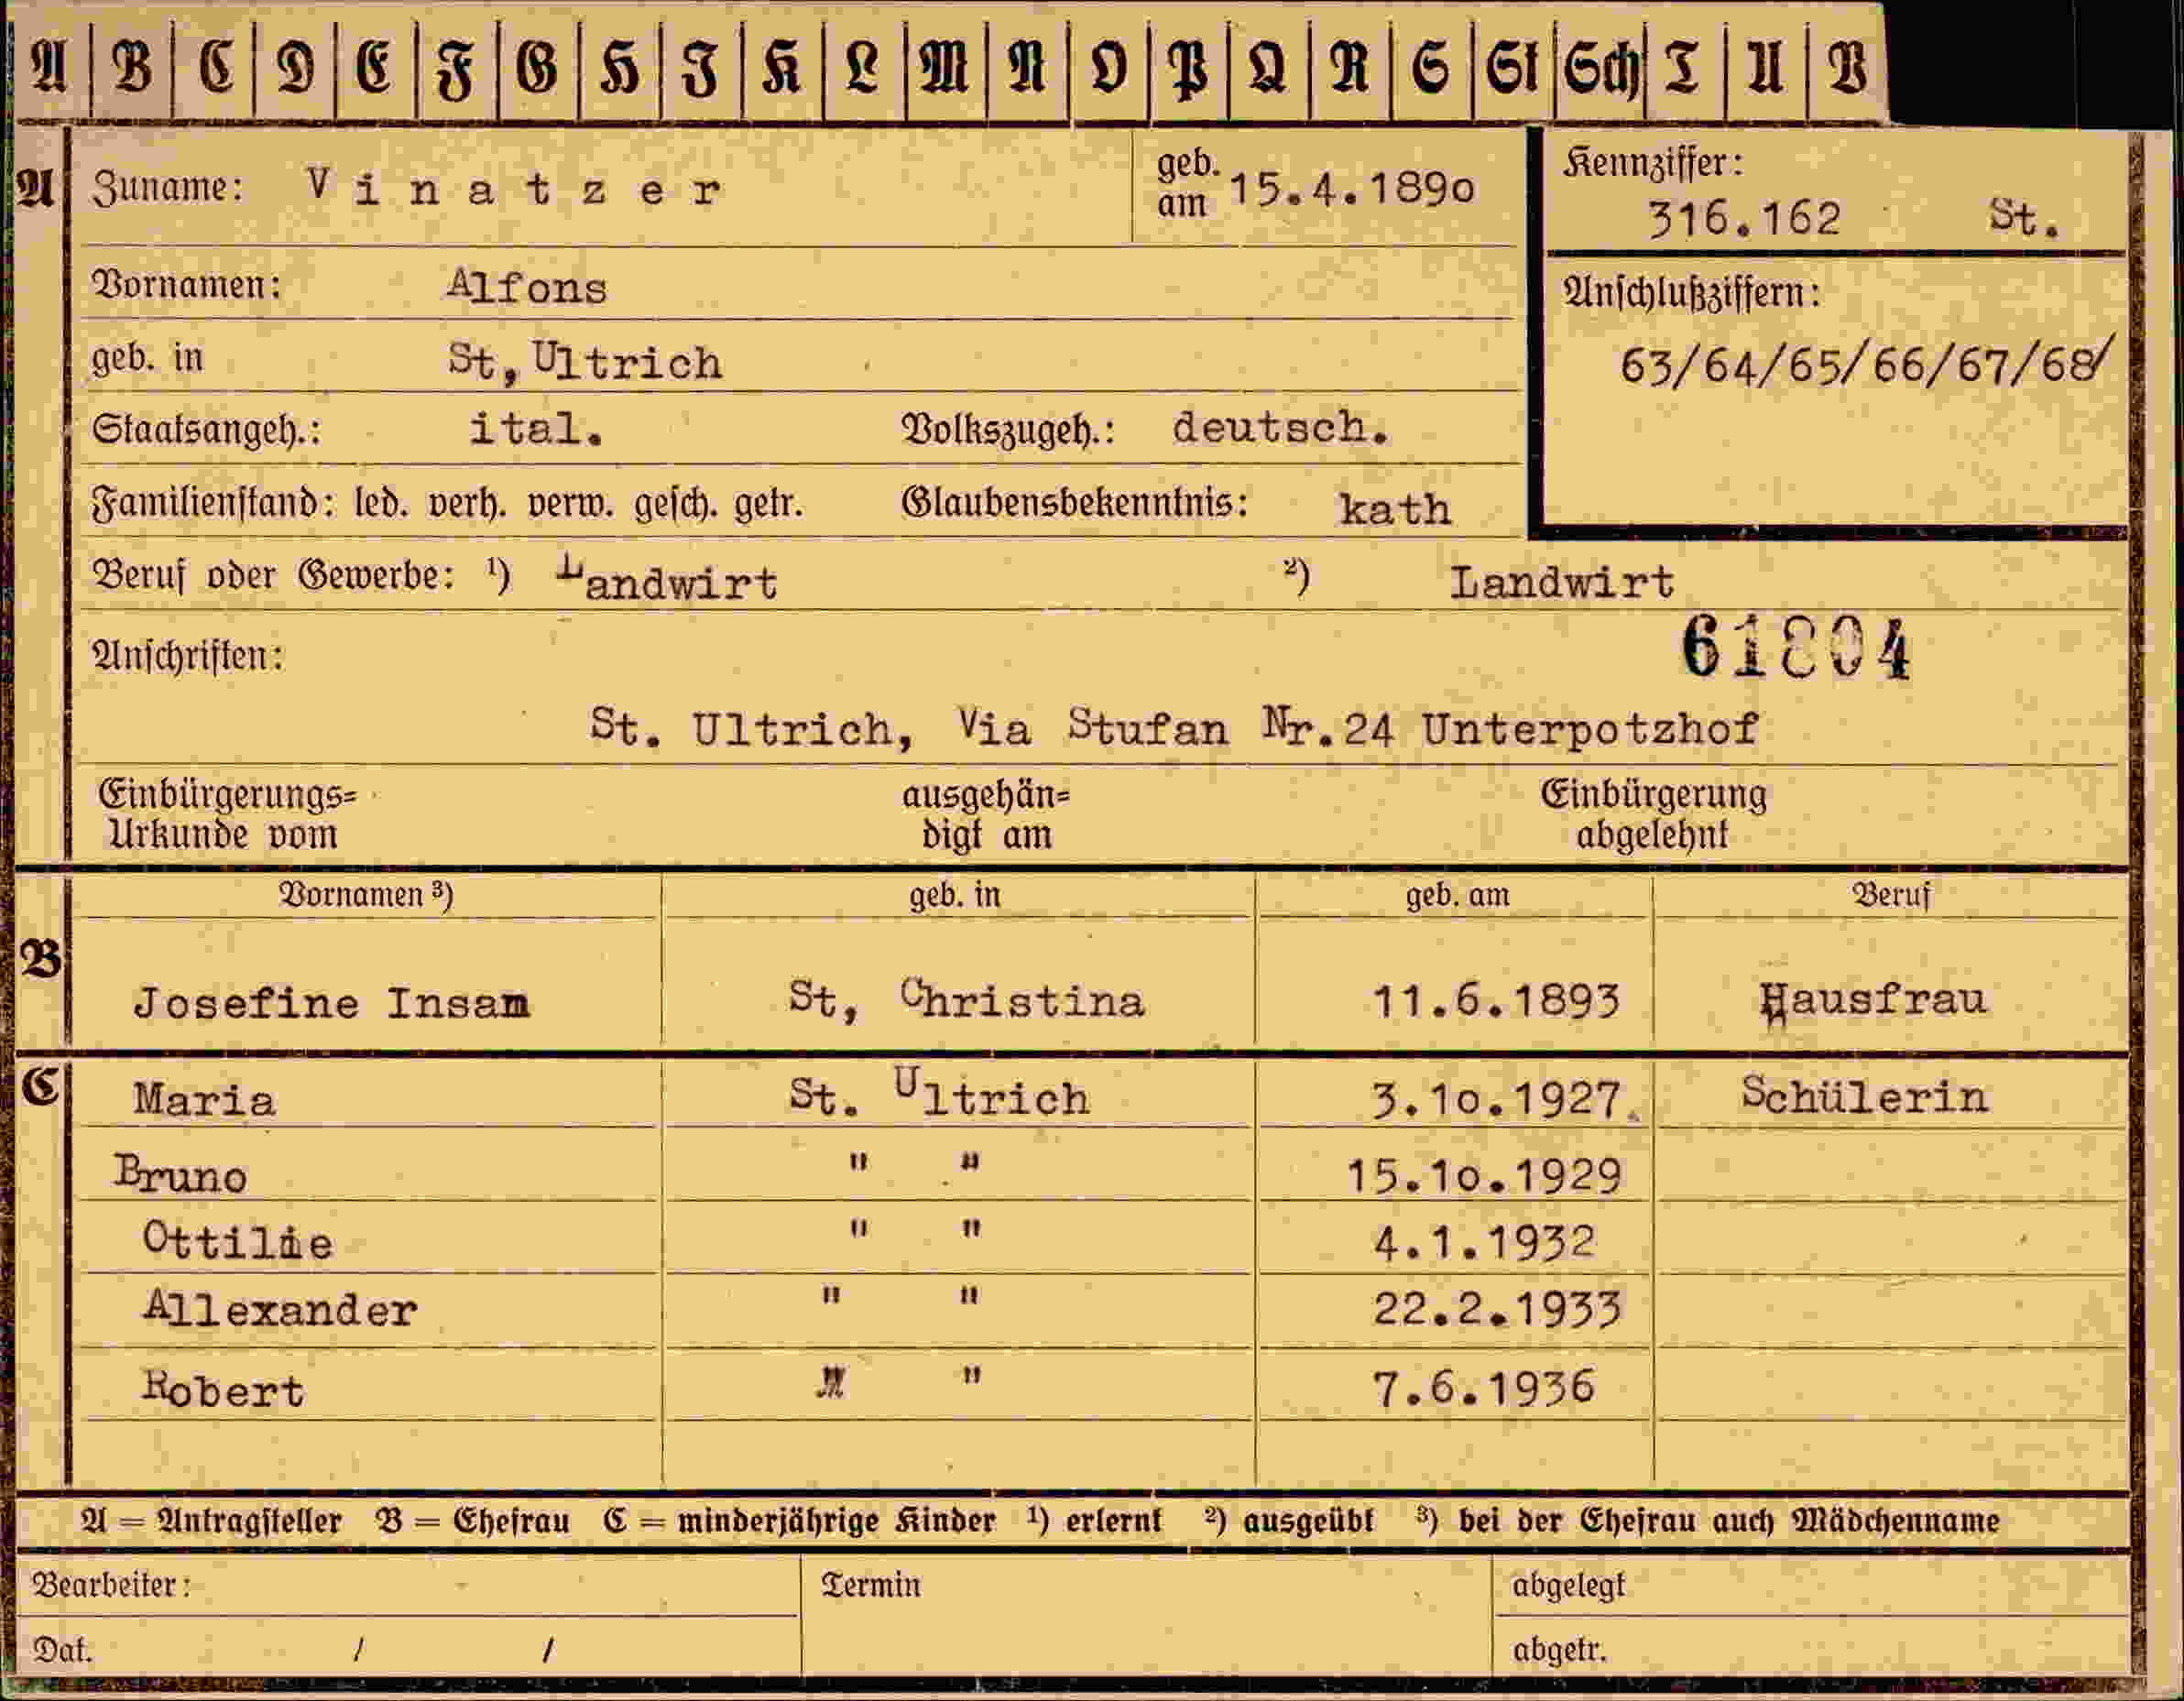 A B C D E F G H J K L M N O P Q R S St Sch T U V
A Zuname: Vinatzer geb. am 15.4.1890 Kennziffer: 316.162 St.
Vornamen: Alfons Anschlußziffern:
geb. in St, Ultrich 63/64/65/66/67/68/
Staatsangeh.: ital. Volkszugeh.: deutsch.
Familienstand: led. verh. verw. gesch. getr. Glaubensbekenntnis: kath
Beruf oder Gewerbe: ¹) Landwirt ²) Landwirt
Anschriften: 61804
St. Ultrich, Via Stufan Nr.24 Unterpotzhof
Einbürgerungs= ausgehän= Einbürgerung
Urkunde vom digt am abgelehnt
Vornamen ³) geb. in geb. am Beruf
B Josefine Insam St, Christina 11.6.1893 Hausfrau
C Maria St. Ultrich 3.10.1927. Schülerin
Bruno " " 15.10.1929
Ottilie " " 4.1.1932
Allexander " " 22.2.1933
Robert " " 7.6.1936
A = Antragsteller B = Ehefrau C = minderjährige Kinder ¹) erlernt ²) ausgeübt ³) bei der Ehefrau auch Mädchenname
Bearbeiter: Termin abgelegt
Dat. / / abgetr.